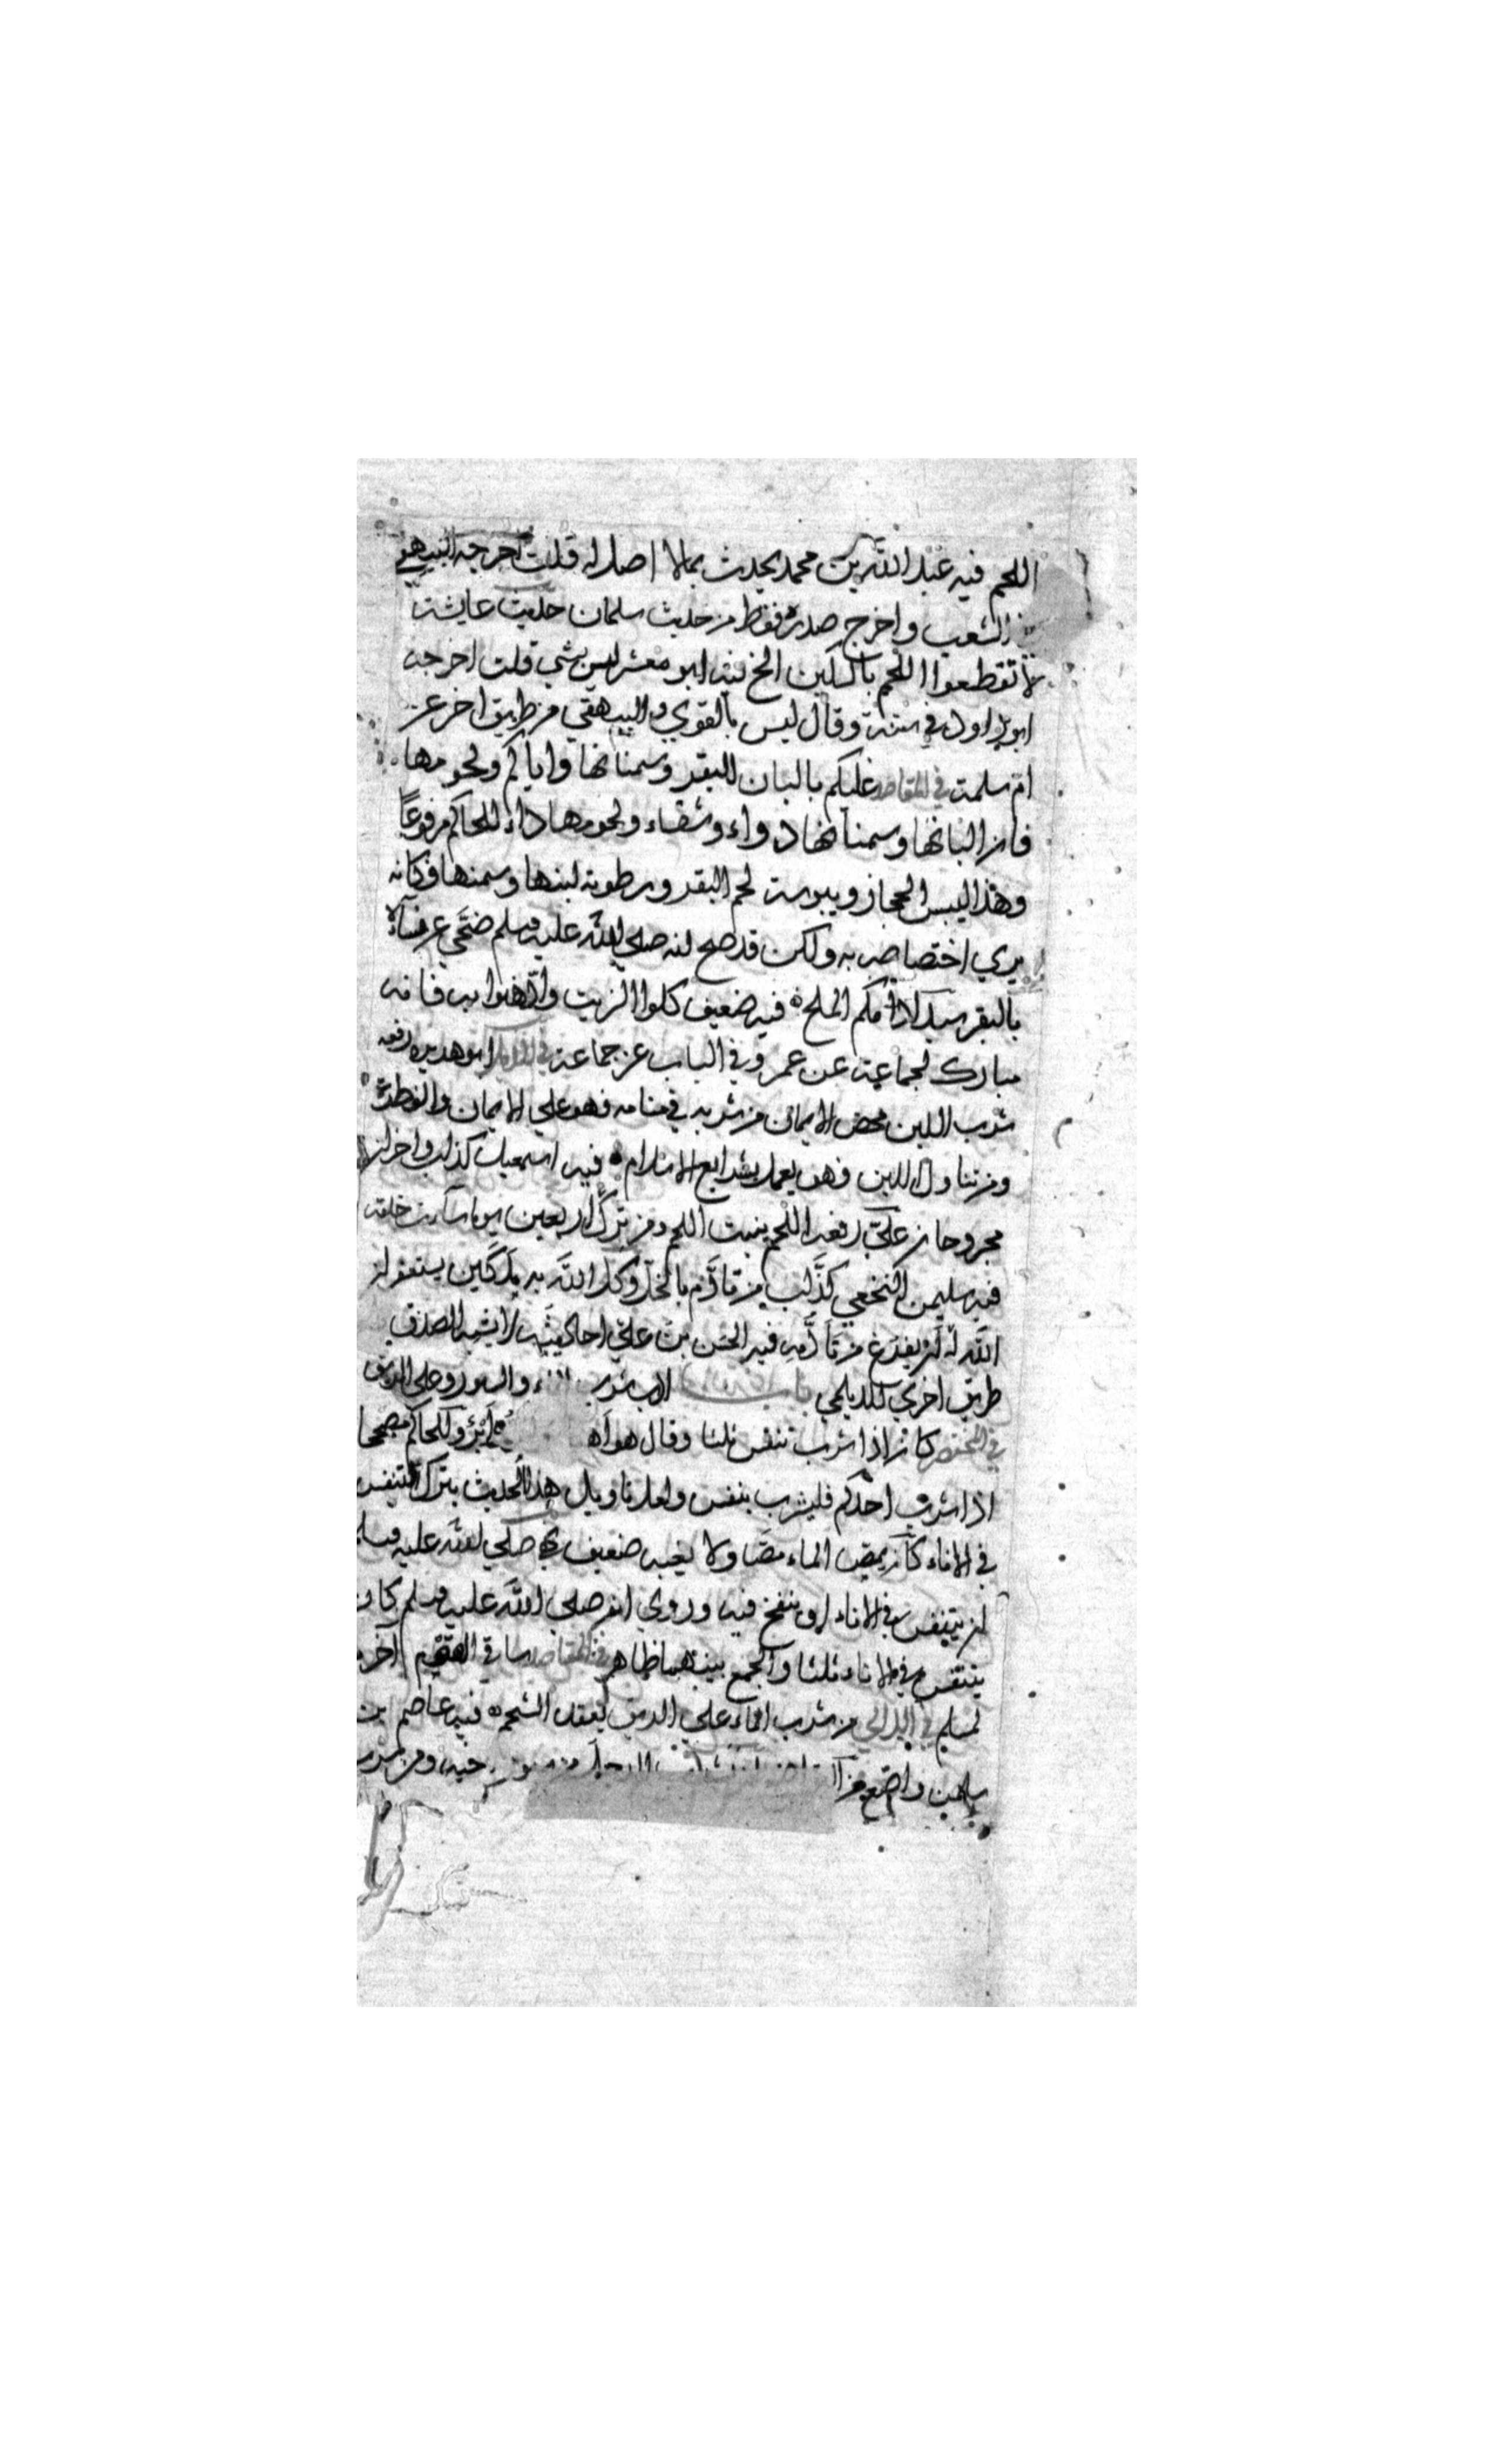 اللحم فيه عبد الله بن محمد يحدث بما لا اصل له قلت اخرجه البيهقي
في الشعب واخرج صدره فقط من حديث سلمان حديث عايشة
لا تقطعوا اللحم بالسكين الخ فيه ابو معشر ليس بشي قلت اخرجه
ابو داود في سننه وقال ليس بالقوي والبيهقي من طريق اخر عن
ام سلمة في المقاصد عليكم بالبان البقر وسمنانها واياكم ولحومها
فان البانها وسمنانها دواء وشفاء ولحومها داء للحاكم مرفوعا
وهذا ليبس الحجاز ويبوسة لحم البقر ورطوبة لبنها وسمنها وكانه
يري اختصاصه به ولكن قد صح انه صلى الله عليه وسلم ضحي عن نسائه
بالبقر سيد ادامكم الملح فيه ضعيف كلوا الزيت وادهنوا به فانه
مبارك لجماعة عن عمر وفي الباب عن جماعة في الذيل ابو هريره رفعه
شرب اللبن محض الايمان من شربه في منامه فهو علي الايمان والفطرة
ومن تناول اللبن فهو يعمل بشرايع الاسلام فيه اسمعيل كذاب واخران
مجروحان علي رفعه اللحم ينبت اللحم ومن تركه اربعين يوما ساءت خلقه
فيه سليمن النخعي كذاب من تادم بالخل وكل الله به ملكين يستغفران
الله له الي ان يفرغ من تادمه فيه الحسن بن علي احاديثه لا يشبه الصدق
طريق اخري للديلمي باب ادب شرب الماء والسور وعلي الريق
في المختصر كان اذا شرب تنفس ثلثا وقال هو اهنا وابرؤ وللحاكم مصححا
اذا شرب احدكم فليشرب بنفس ولعل تاويل هذا الحديث بترك التنفس
في الاناء كان يمص الماء مصا ولا يعبه ضعيف نهي صلى الله عليه وسلم
ان يتنفس في الاناء او ينفخ فيه وروي انه صلى الله عليه وسلم كان
يتنفس في الاناء ثلثا والجمع بينهما ظاهر في المقاصد ساقي القوم آخرهم
لمسلم في الذيل من شرب الماء علي الريق يعقد الشحم فيه عاصم بن
سليمن واضع من الرجل من اخيه ومن شرب